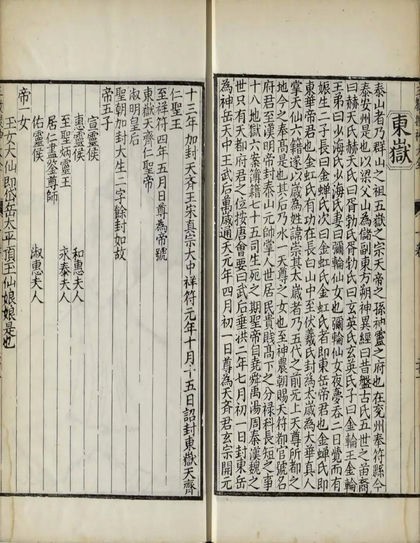 東嶽
泰山者乃群山之祖五嶽之宗天帝之孫神靈之府也在兖州奉符縣今
泰安州是也以梁父山為儲副東方朔神異經曰昔盤古氏五世之苗裔
曰赫天氏赫天氏曰胥勃氏胥勃氏曰玄英氏玄英氏子曰金輪王金輪
王弟曰少海氏少海氏妻曰彌輪仙女也彌輪仙女夜夢吞二日覺而有
娠生二子長曰金蟬氏次曰金虹氏金虹氏者即東岳帝君也金蟬氏即
東華帝君也金虹氏有功在長白山中至伏羲氏封為太歲為大華真人
掌天仙六籍遂以歲為姓諱崇其太歲者乃五代之前無上天尊所都之
地今之奉高是也其后乃水一天尊之女也至神農朝賜天符都官號名
府君至漢明帝封泰山元帥掌人世居民貴賤高下之分祿科長短之事
十八地獄六案簿籍七十五司生死之期聖帝自堯舜禹湯周秦漢魏之
世只有天都府君之位按唐會要曰武后垂拱二年七月初一日封東岳
為神岳天中王武后萬歲通天元年四月初一日尊為天齊君玄宗開元
十三年加封天齊王宋真宗大中祥符元年十月十五日詔封東嶽天齊
仁聖王
至祥符四年五月日尊為帝號
東嶽天齊仁聖帝
淑明皇后
聖朝加封大生二字餘封如故
帝五子
宣靈侯
惠靈侯 和惠夫人
至聖炳靈王 永泰夫人
居仁盡鑒尊師
佑靈侯 淑惠夫人
帝一女
玉女大仙即岱岳太平頂玉仙娘娘是也